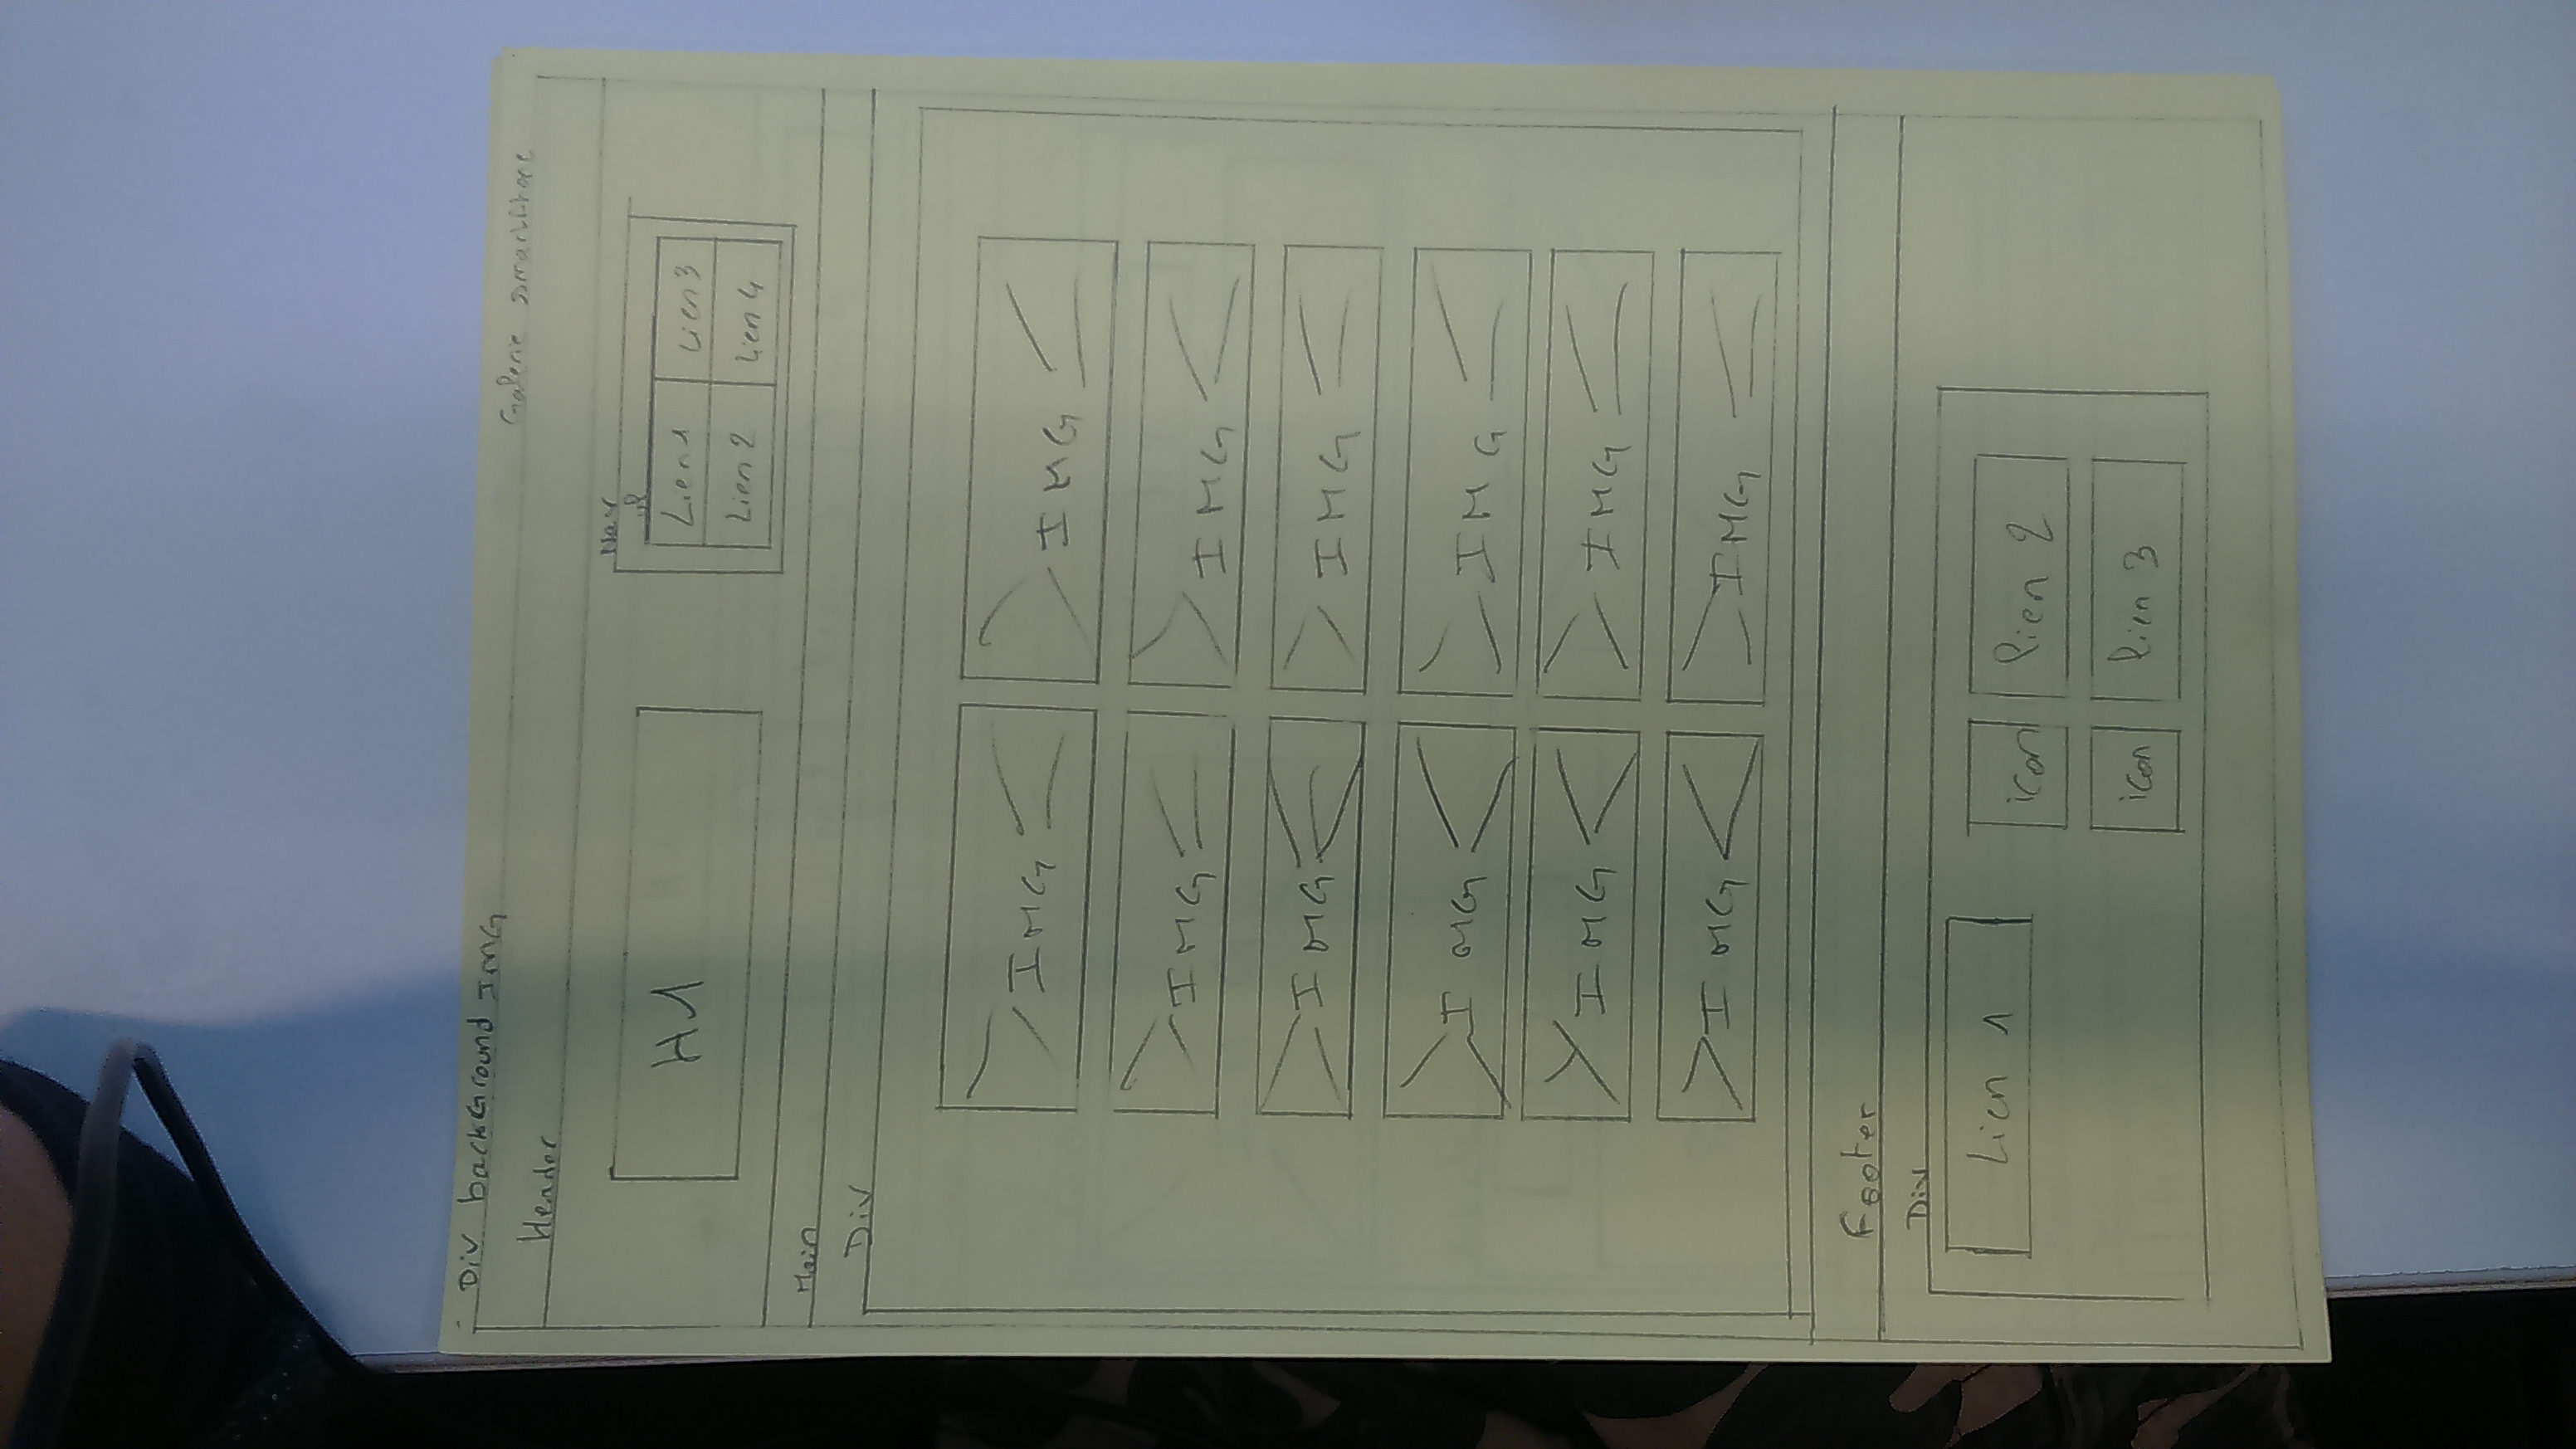 Div background IMG
Galerie smartphone
Header
H1
Nav
ul
Lien 1
Lien 3
Lien 2
Lien 4
Main
Div
IMG
IMG
IMG
IMG
IMG
IMG
IMG
IMG
IMG
IMG
IMG
IMG
Footer
Div
Lien 1
icon
lien 2
icon
lien 3